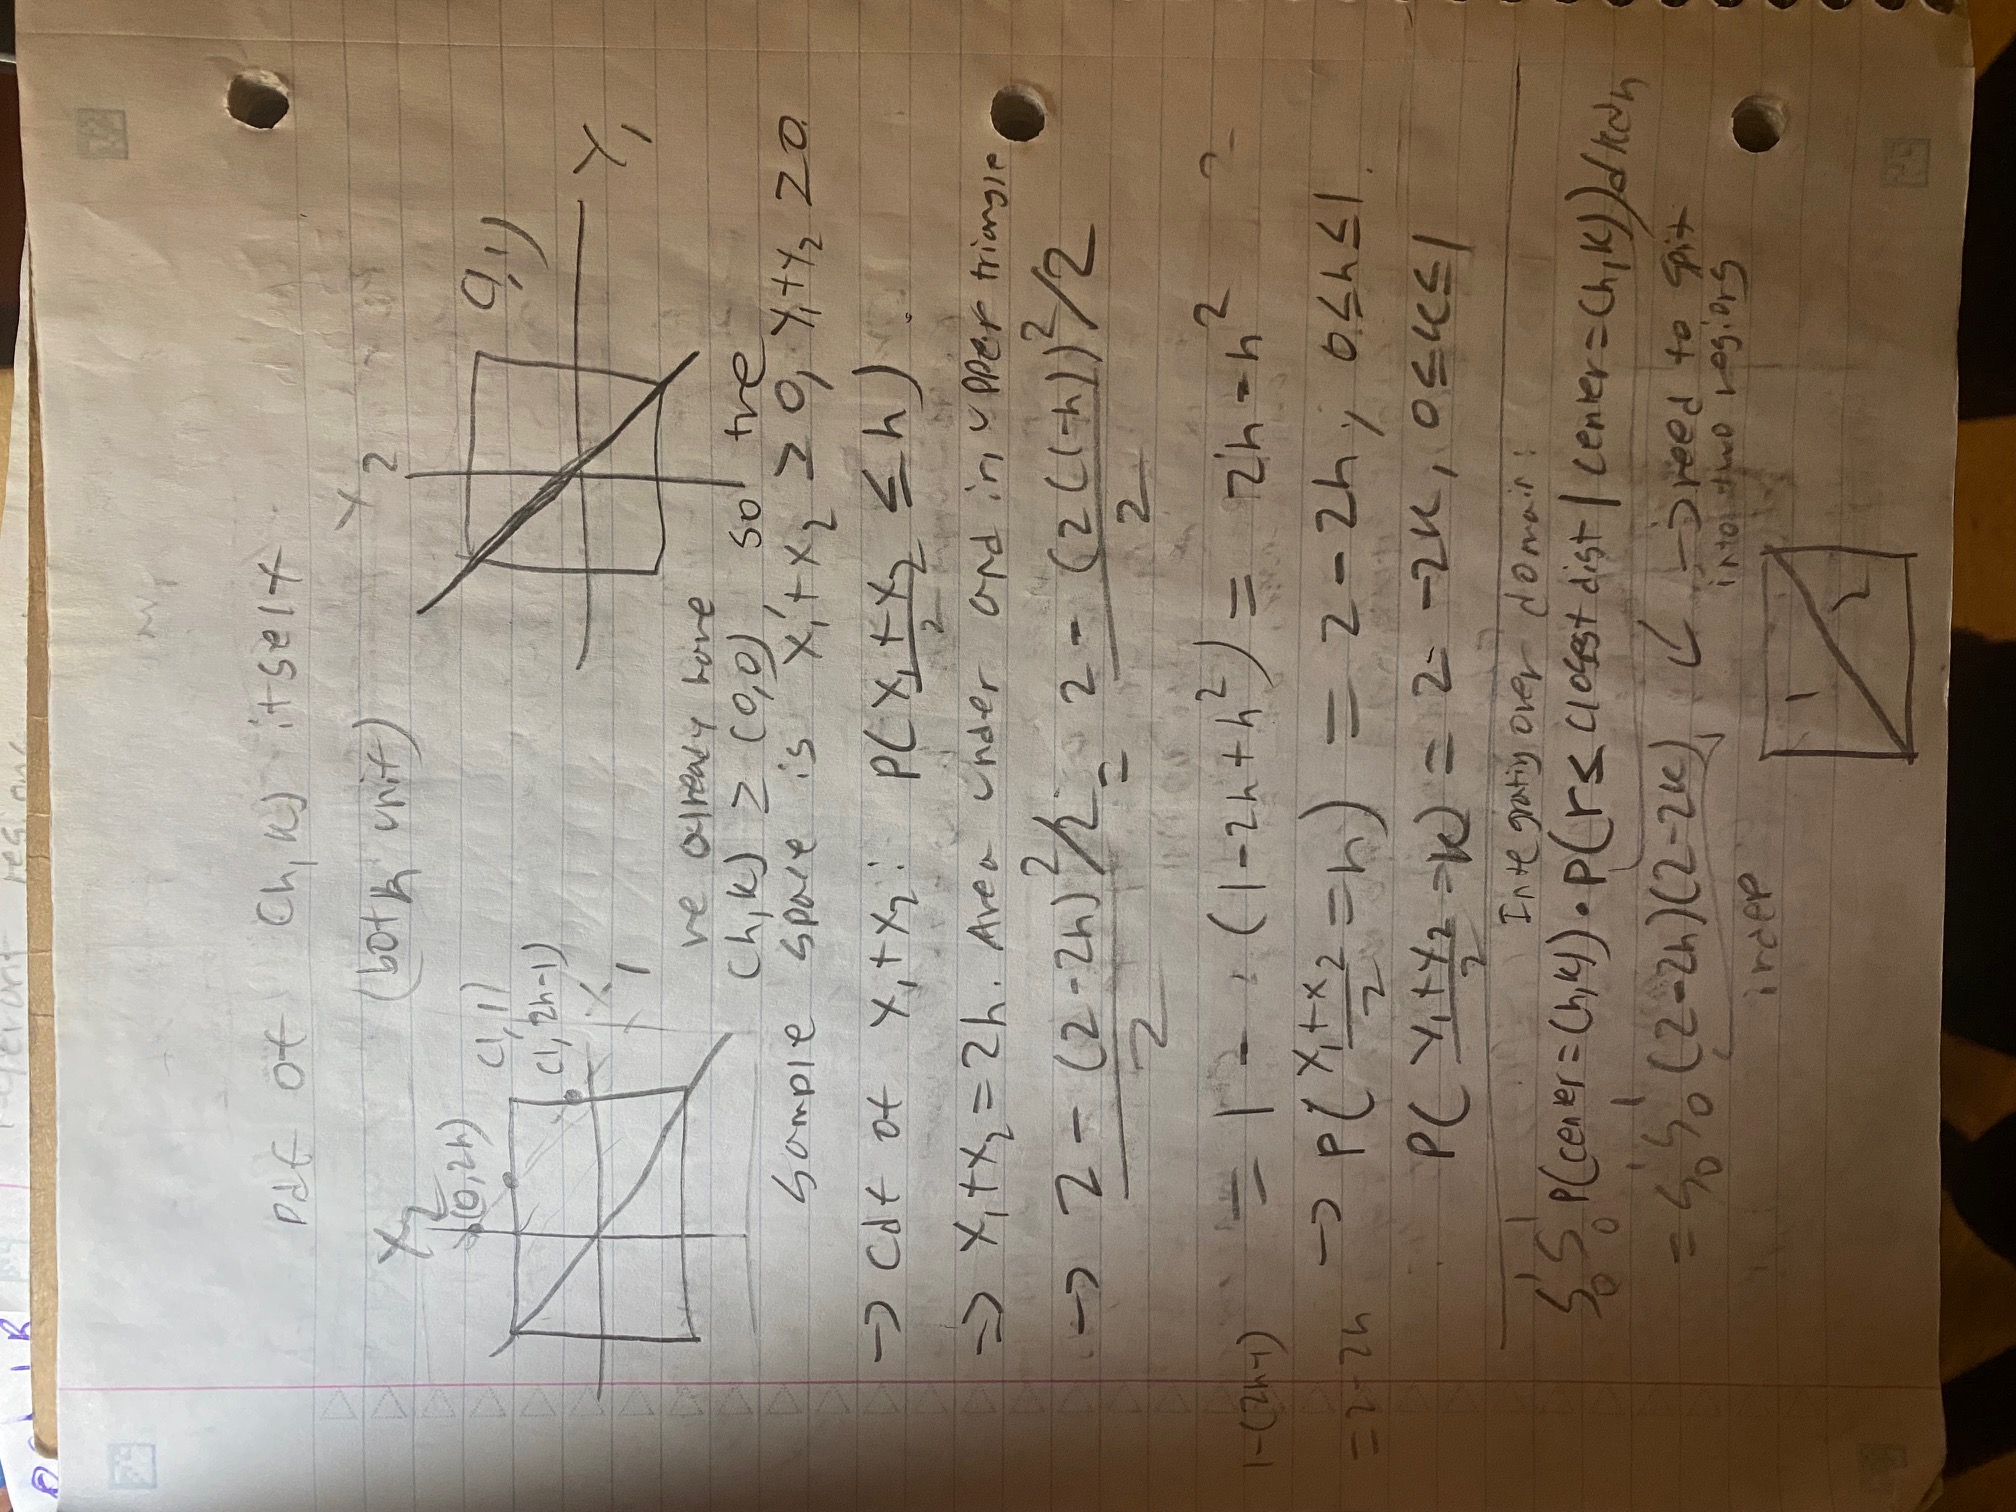 pdf of (h,k) itself
(both unif)
X2
(0,2h)
(1,1)
(1,2h-1)
X1
Y2
(1,1)
Y1
we already have
(h,k) ≥ (0,0) so the
sample space is x1+x2 ≥ 0, y1+y2 ≥ 0
→ cdf of x1+x2: P((x1+x2)/2 ≤ h).
⇒ x1+x2=2h. Area under and in upper triangle
→ (2-(2-2h)²/2)/2 = (2-(2(1-h))²/2)/2
= 1 - (1-2h+h²) = 2h-h² ?
1-(2h-1)
=2-2h
→ P((x1+x2)/2=h) = 2-2h, 0≤h≤1.
P((y1+y2)/2=k) = 2-2k, 0≤k≤1
Integrating over domain:
∫₀¹∫₀¹ P(center=(h,k))·P(r≤closest dist | center=(h,k))dkdh
=∫₀¹∫₀¹ (2-2h)(2-2k)
indep
→ need to split
into two regions
1
2